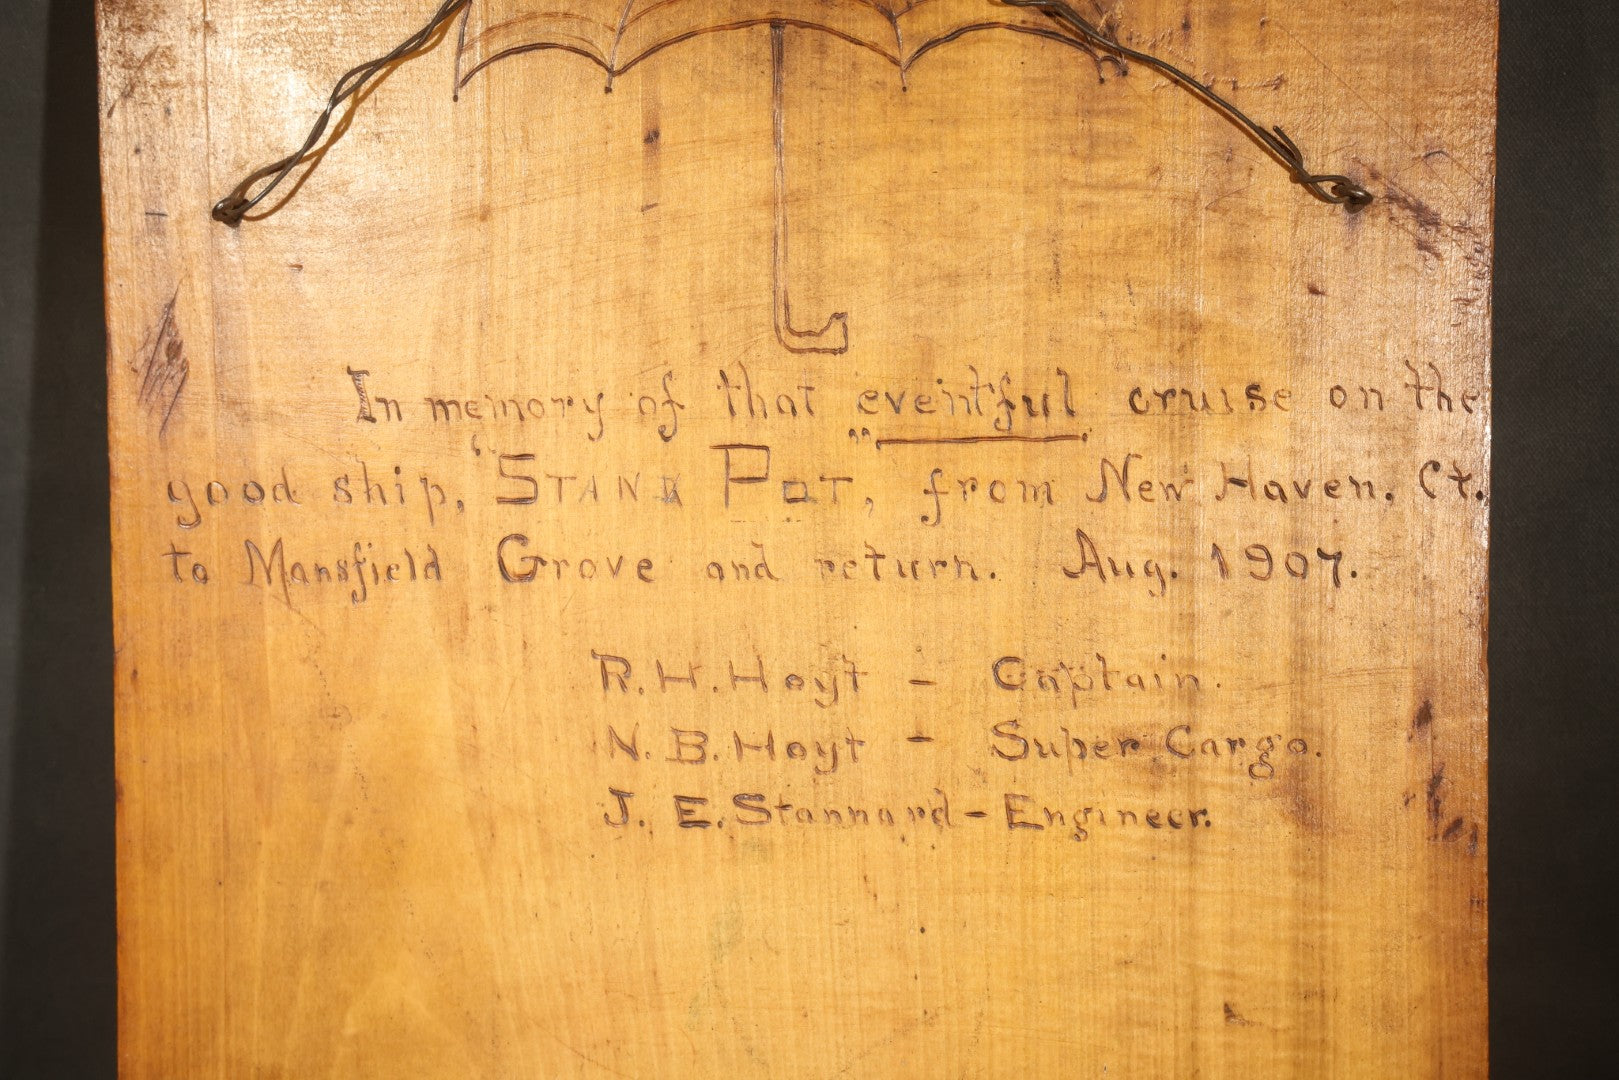 In memory of that eventful cruise on the
good ship, "STANK POT," from New Haven. Ct.
to Mansfield Grove and return. Aug. 1907.
R. H. Hoyt - Captain.
N. B. Hoyt - Super Cargo.
J. E. Stannard - Engineer.